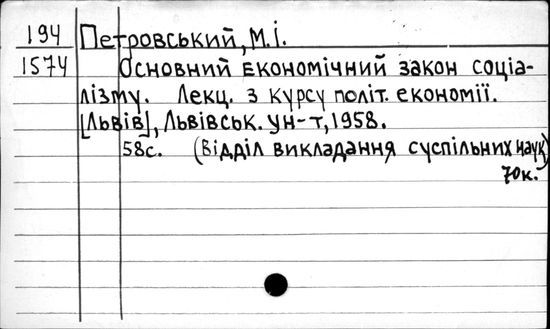 194 Петровський, М.І.
1574 Основний економічний закон соціа-
лізму. Лекц. з курсу політ. економії.
[Львів], Львівськ. ун-т, 1958.
58с. (Відділ викладання суспільних наук)
70к.